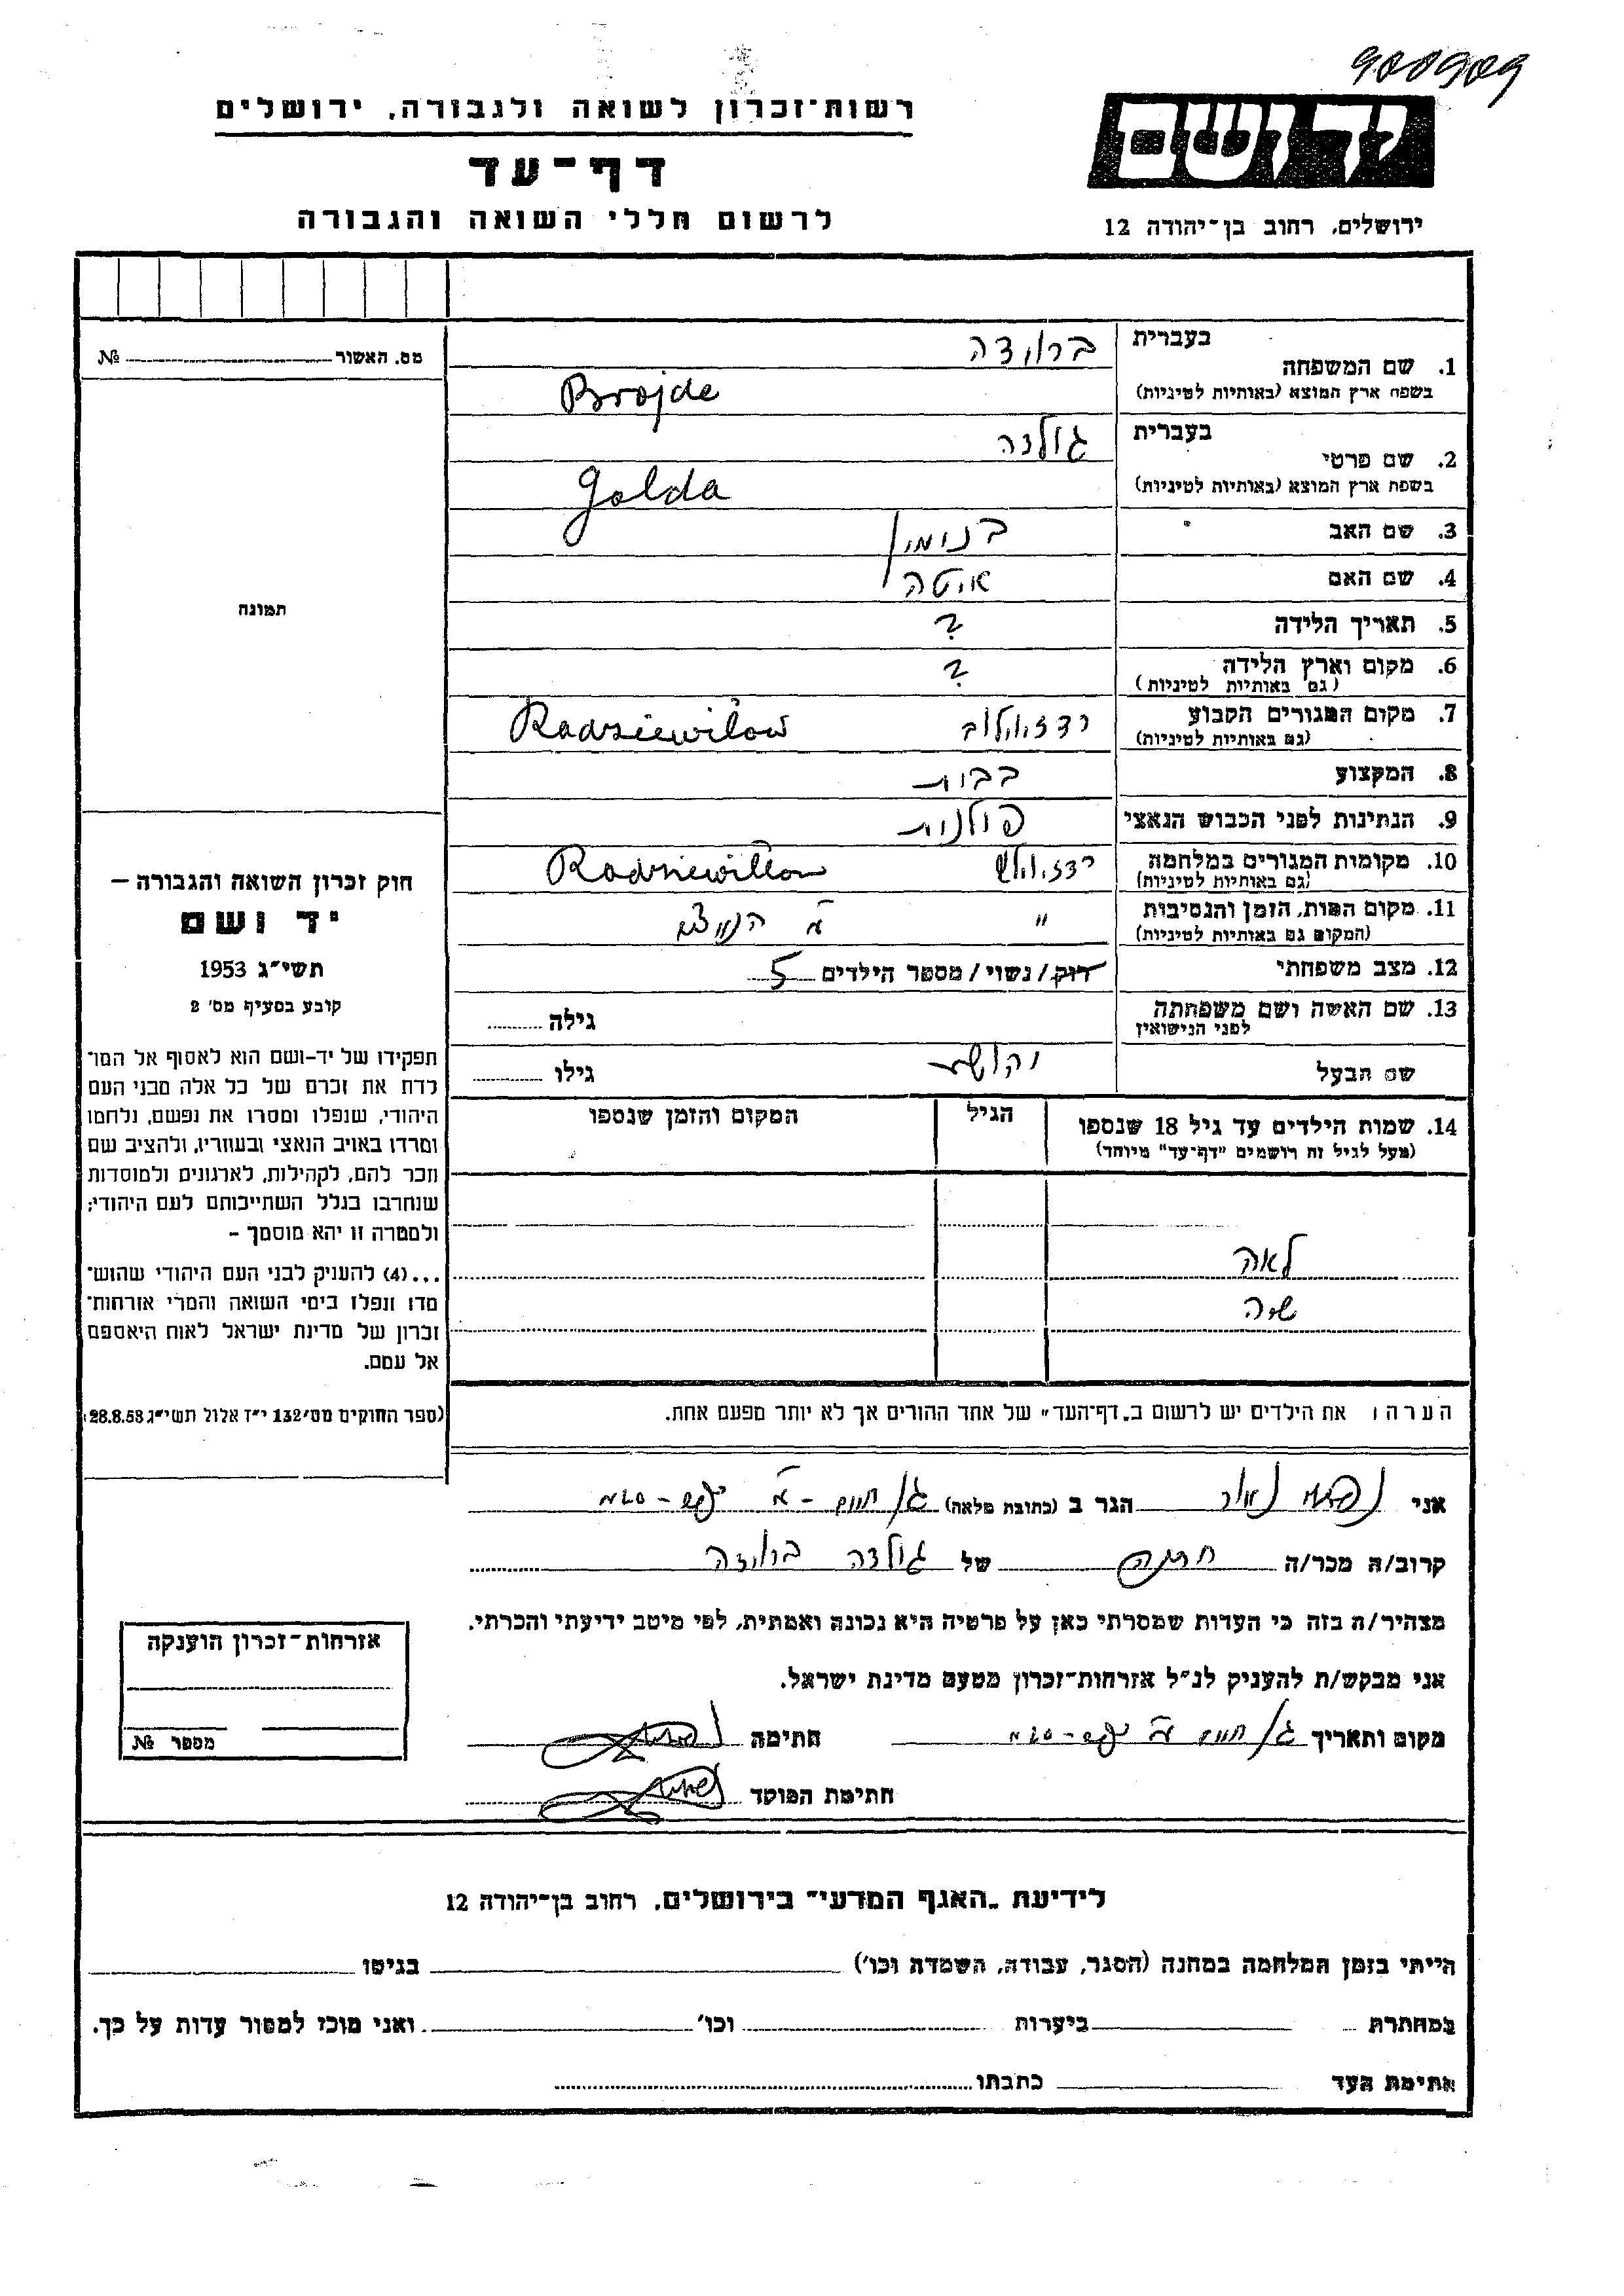 900909
רשות-זכרון לשואה ולגבורה, ירושלים
יד ושם
דף-עד
לרשום חללי השואה והגבורה
ירושלים, רחוב בן-יהודה 12
מס. האשור № 
בעברית ברוידה
1. שם המשפחה
בשפת ארץ המוצא (באותיות לטיניות) Brojde
בעברית גולדה
2. שם פרטי
בשפת ארץ המוצא (באותיות לטיניות) Golda
3. שם האב בנימין
4. שם האם איטה
5. תאריך הלידה ?
6. מקום וארץ הלידה ?
(גם באותיות לטיניות)
7. מקום המגורים הקבוע רדזיוילוב Radziewilow
(גם באותיות לטיניות)
8. המקצוע
9. הנתינות לפני הכבוש הנאצי פולנית
10. מקומות המגורים במלחמה Radziewillow
(גם באותיות לטיניות)
11. מקום המות, הזמן והנסיבות "
(המקום גם באותיות לטיניות)
12. מצב משפחתי רוק/נשוי/מספר הילדים 5
13. שם האשה ושם משפחתה גילה
לפני הנישואין
שם הבעל יהושע גילו
14. שמות הילדים עד גיל 18 שנספו הגיל המקום והזמן שנספו
(מעל לגיל זה רושמים "דף-עד" מיוחד)
לאה
שרה
הערה: את הילדים יש לרשום ב"דף-העד" של אחד ההורים אך לא יותר מפעם אחת.
תמונה
חוק זכרון השואה והגבורה –
יד ושם
תשי"ג 1953
קובע בסעיף מס' 2
תפקידו של יד-ושם הוא לאסוף אל המו-
לדת את זכרם של כל אלה מבני העם
היהודי, שנפלו ומסרו את נפשם, נלחמו
ומרדו באויב הנאצי ובעוזריו, ולהציב שם
וזכר להם, לקהילות, לארגונים ולמוסדות
שנחרבו בגלל השתייכותם לעם היהודי;
ולמטרה זו יהא מוסמך –
...(4) להעניק לבני העם היהודי שהוש-
מדו ונפלו בימי השואה והמרי אזרחות-
זכרון של מדינת ישראל לאות היאספם
אל עמם.
(ספר החוקים מס' 132 י"ז אלול תשי"ג 28.8.53)
אני הגר ב (כתובת מלאה)
קרוב/ה מכר/ה של גולדה ברוידה
מצהיר/ה בזה כי העדות שמסרתי כאן על פרטיה היא נכונה ואמתית, לפי מיטב ידיעתי והכרתי.
אני מבקש/ת להעניק לנ"ל אזרחות-זכרון מטעם מדינת ישראל.
מקום ותאריך חתימה
חתימת הפוקד
אזרחות-זכרון הוענקה
מספר №
לידיעת "האגף המדעי" בירושלים, רחוב בן-יהודה 12
הייתי בזמן המלחמה במחנה (הסגר, עבודה, השמדה וכו') בגיטו
במחתרת ביערות וכו' ואני מוכן למסור עדות על כך.
חתימת העד כתבתו